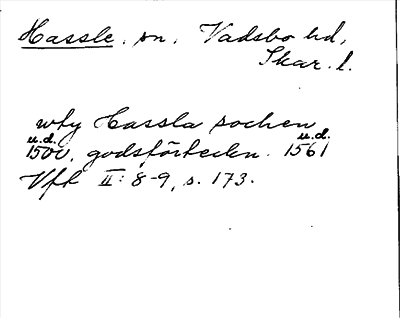 Hassle, sn, Vadsbo hd,
Skar. l.
wty Hassla sochen
u.d. u.d.
1500, godsförteckn. 1561
Vft II: 8-9, s. 173.